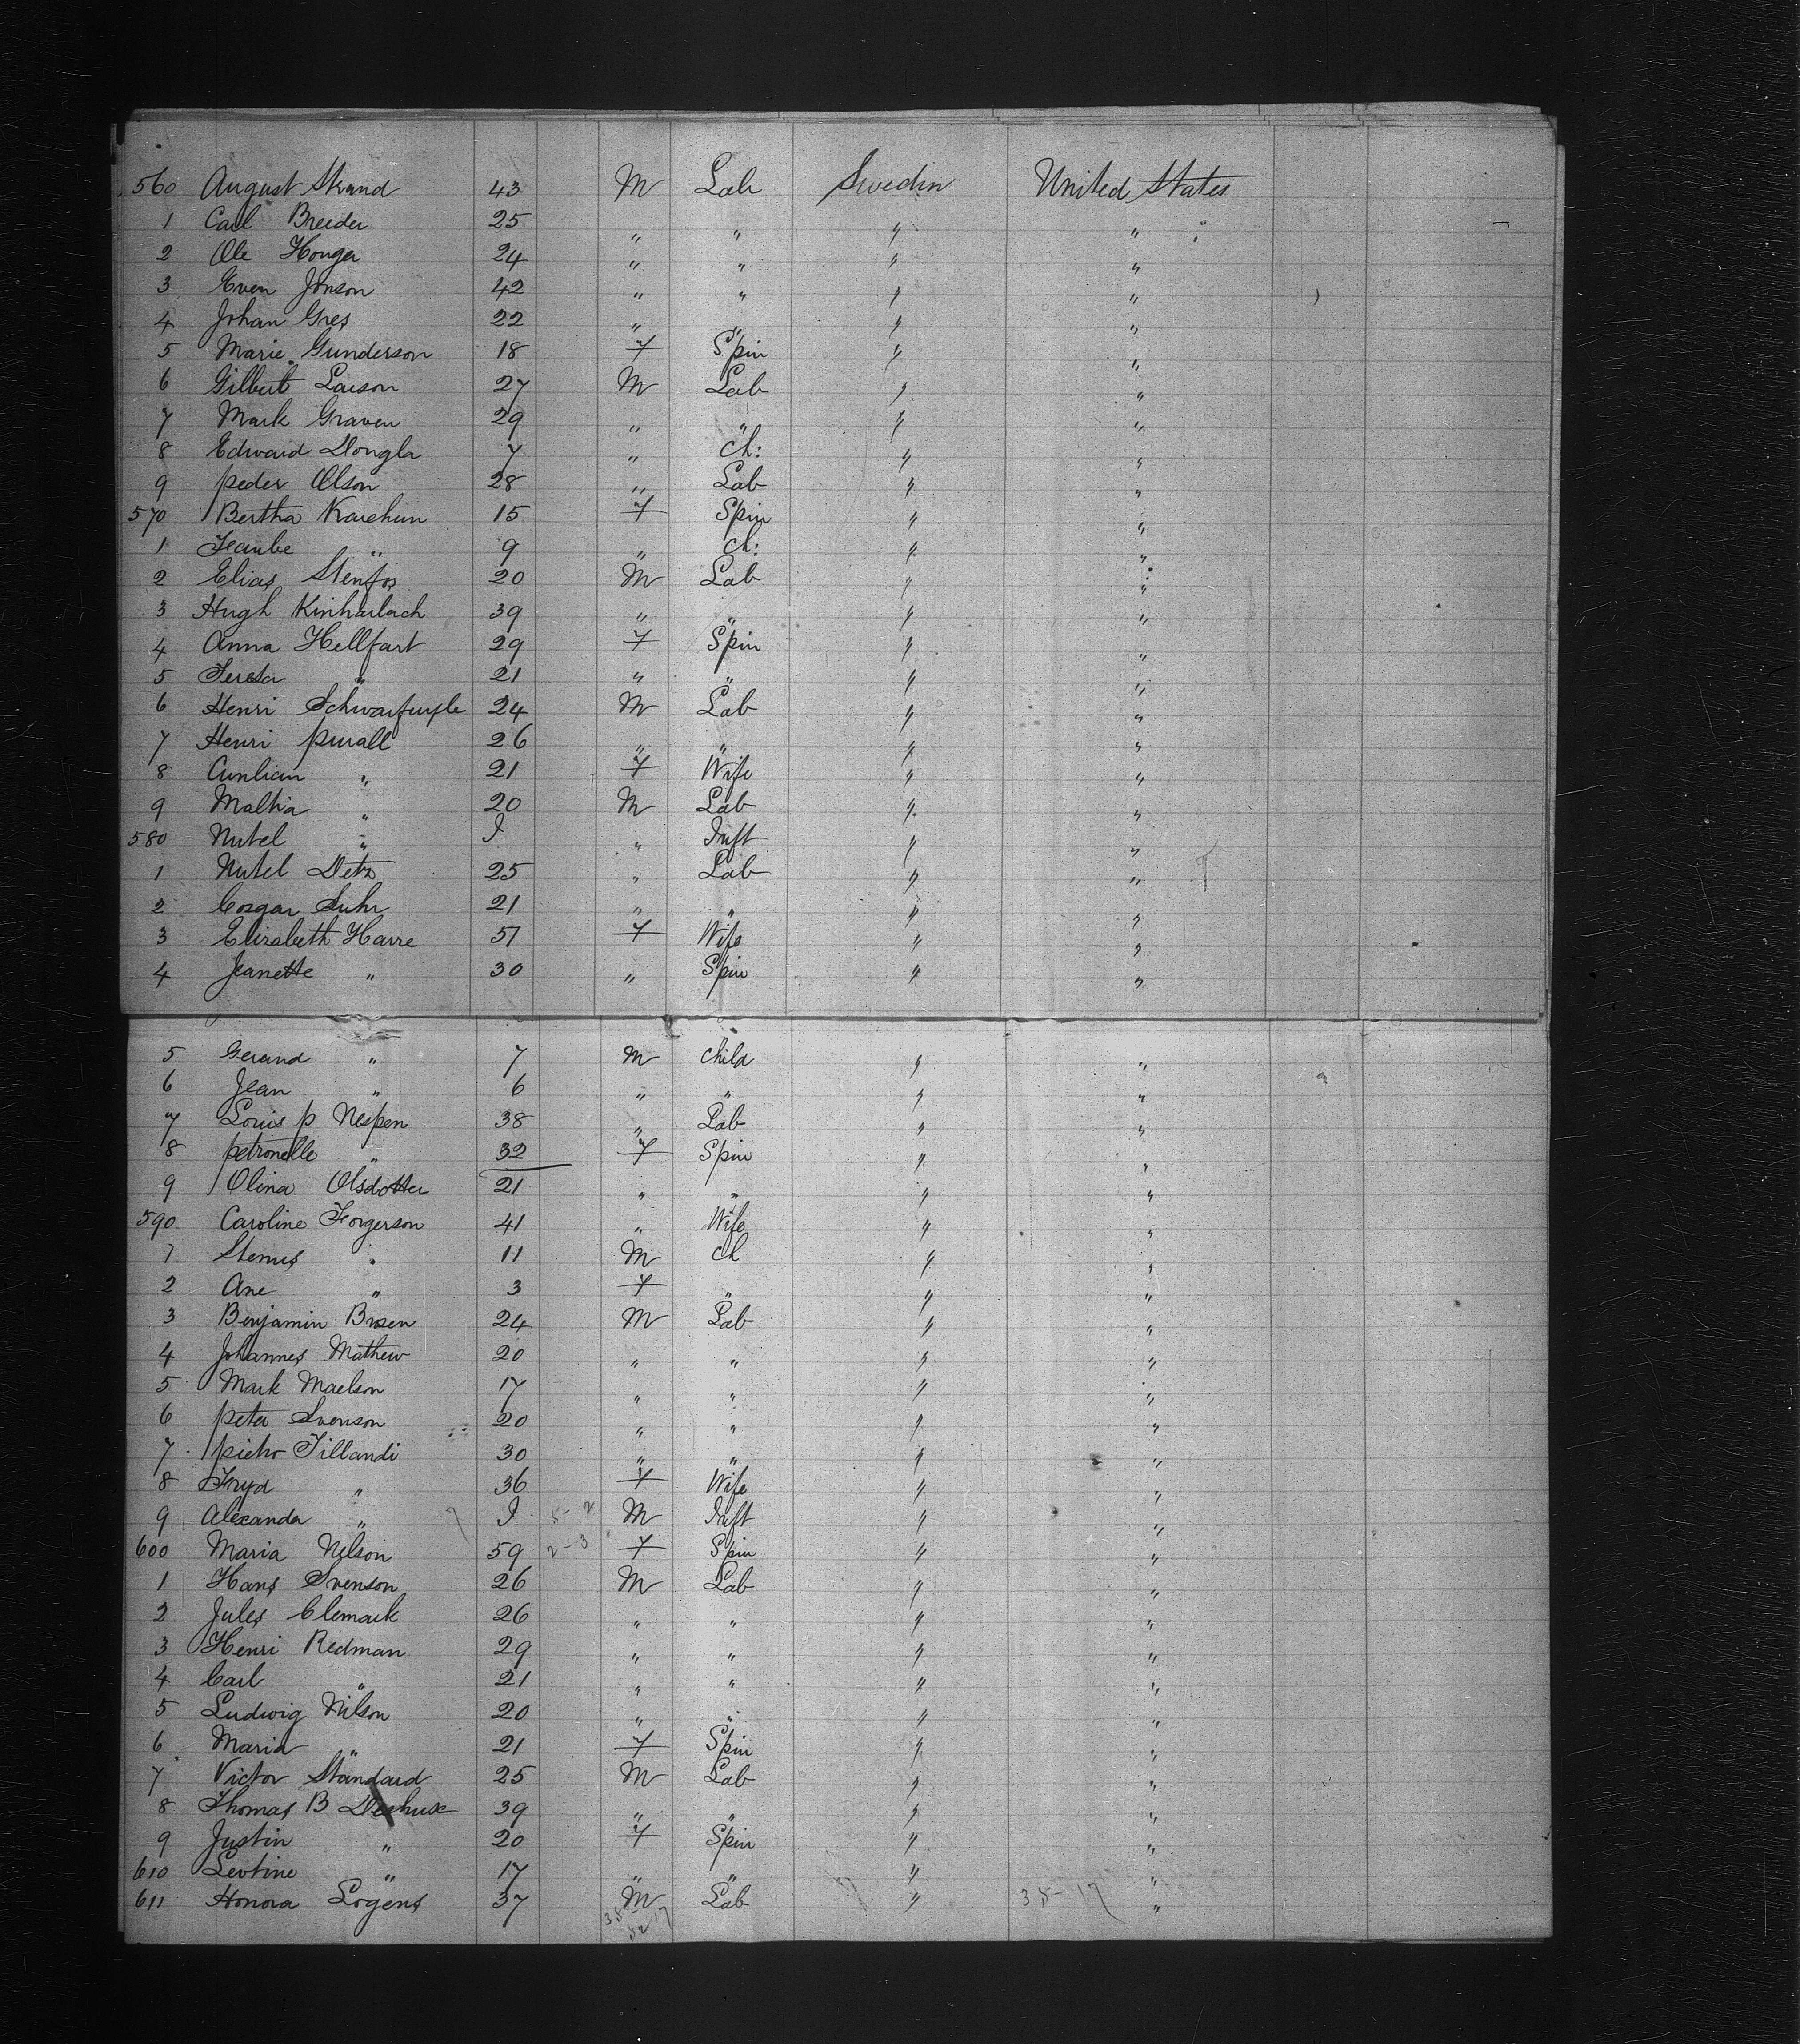 560 August Strand 43 M Lab Sweden United States
1 Carl Breeder 25 " " " "
2 Ole Honga 24 " " " "
3 Even Jonson 42 " " " "
4 Johan Gres 22 " " " "
5 Marie Gunderson 18 F Spin " "
6 Gilbert Larson 27 M Lab " "
7 Mark Graven 29 " " " "
8 Edward 7 " Ch: " "
9 peder Olson 28 " Lab " "
570 Bertha 15 F Spin " "
1 " 9 " Ch: " "
2 Elias Stenfos 20 M Lab " "
3 Hugh 39 " " " "
4 Anna Hellfart 29 F Spin " "
5 " 21 " " " "
6 Henri 24 M Lab " "
7 Henri 26 " " " "
8 " 21 F Wife " "
9 " 20 M Lab " "
580 Nutel " I " Inft " "
1 Nutel Detz 25 " Lab " "
2 21 " " " "
3 Elizabeth Harre 51 F Wife " "
4 Jeanette " 30 " Spin " "
5 Gerand " 7 M Child " "
6 Jean " 6 " " " "
7 Louis p Nespen 38 " Lab " "
8 petronelle " 32 F Spin " "
9 Olina Olsdotter 21 " " " "
590 Caroline 41 " Wife " "
1 Stenus " 11 M Ch " "
2 Ane " 3 F " " "
3 Benjamin 24 M Lab " "
4 Johannes Mathew 20 " " " "
5 Mark Maelson 17 " " " "
6 peter Svenson 20 " " " "
7 pietro Tillandi 30 " " " "
8 " 36 F Wife " "
9 Alexander " I 5-2 M Inft " "
600 Maria Nelson 59 2-3 F Spin " "
1 Hans Svenson 26 M Lab " "
2 Jules Clemark 26 " " " "
3 Henri Redman 29 " " " "
4 Carl " 21 " " " "
5 Ludwig Nilson 20 " " " "
6 Maria " 21 F Spin " "
7 Victor Standard 25 M Lab " "
8 Thomas B 39 " " " "
9 Justin " 20 F Spin " "
610 Leotine " 17 " " " "
611 Honora Logens 37 M Lab " 35-17 "